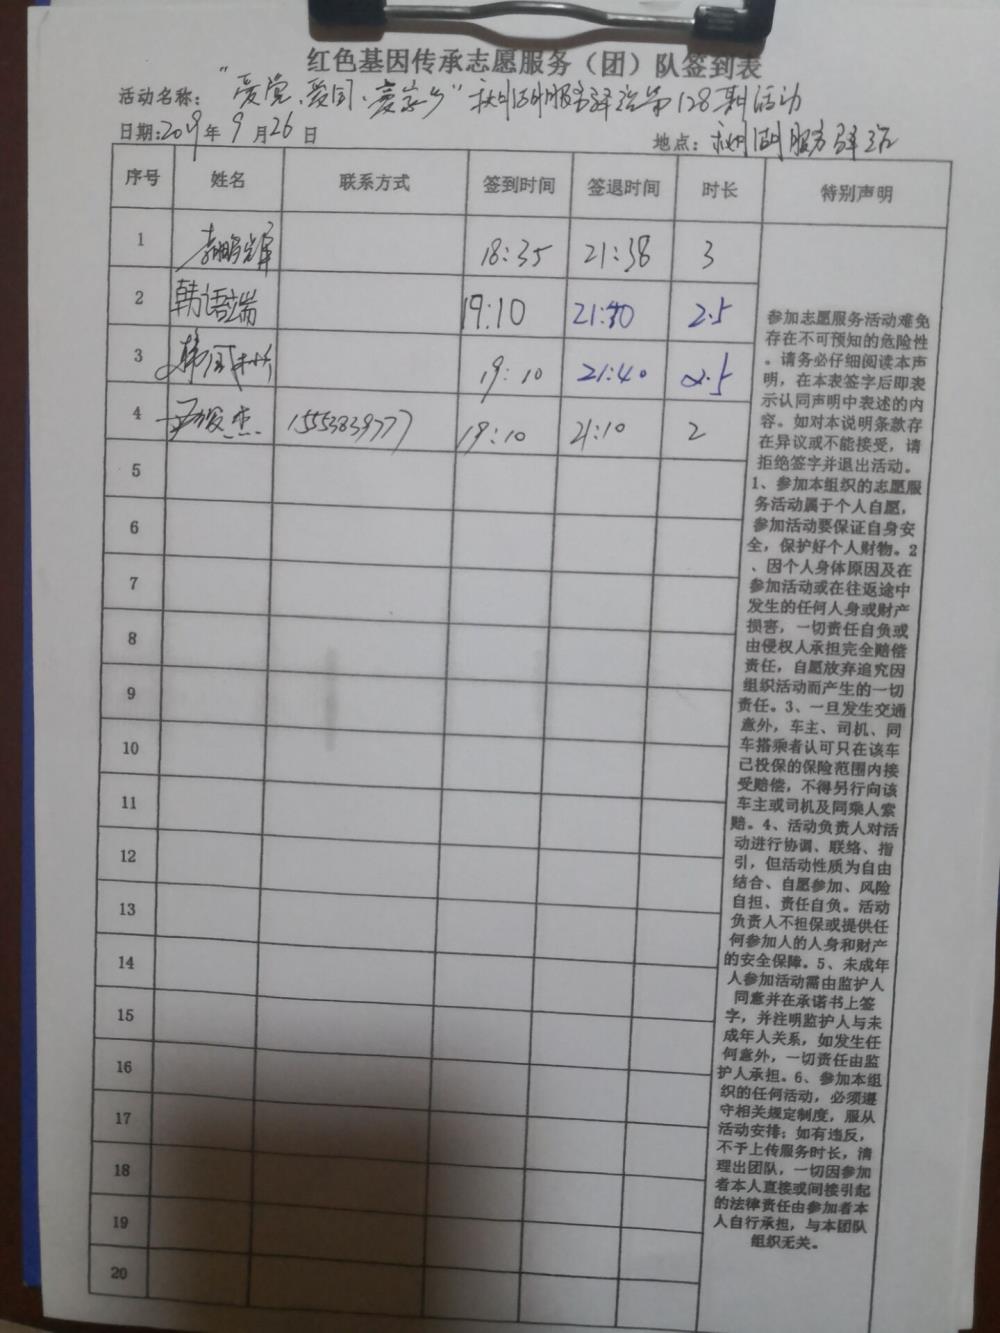 红色基因传承志愿服务（团）队签到表
活动名称："爱党、爱国、爱家乡" 服务驿站第128期活动
日期:2019年9月26日 地点: 服务驿站
序号 姓名 联系方式 签到时间 签退时间 时长 特别声明
1 18:35 21:38 3
2 韩语端 19:10 21:40 2.5
3 韩凤 19:10 21:40 2.5
4 俊杰 15553839777 19:10 21:10 2
5
6
7
8
9
10
11
12
13
14
15
16
17
18
19
20
参加志愿服务活动难免
存在不可预知的危险性
。请务必仔细阅读本声
明，在本表签字后即表
示认同声明中表述的内
容。如对本说明条款存
在异议或不能接受，请
拒绝签字并退出活动。
1、参加本组织的志愿服
务活动属于个人自愿，
参加活动要保证自身安
全，保护好个人财物。2
、因个人身体原因及在
参加活动或在往返途中
发生的任何人身或财产
损害，一切责任自负或
由侵权人承担完全赔偿
责任，自愿放弃追究因
组织活动而产生的一切
责任。3、一旦发生交通
意外，车主、司机、同
车搭乘者认可只在该车
已投保的保险范围内接
受赔偿，不得另行向该
车主或司机及同乘人索
赔。4、活动负责人对活
动进行协调、联络、指
引，但活动性质为自由
结合、自愿参加、风险
自担、责任自负。活动
负责人不担保或提供任
何参加人的人身和财产
的安全保障。5、未成年
人参加活动需由监护人
同意并在承诺书上签
字，并注明监护人与未
成年人关系，如发生任
何意外，一切责任由监
护人承担。6、参加本组
织的任何活动，必须遵
守相关规定制度，服从
活动安排；如有违反，
不予上传服务时长，清
理出团队，一切因参加
者本人直接或间接引起
的法律责任由参加者本
人自行承担，与本团队
组织无关。